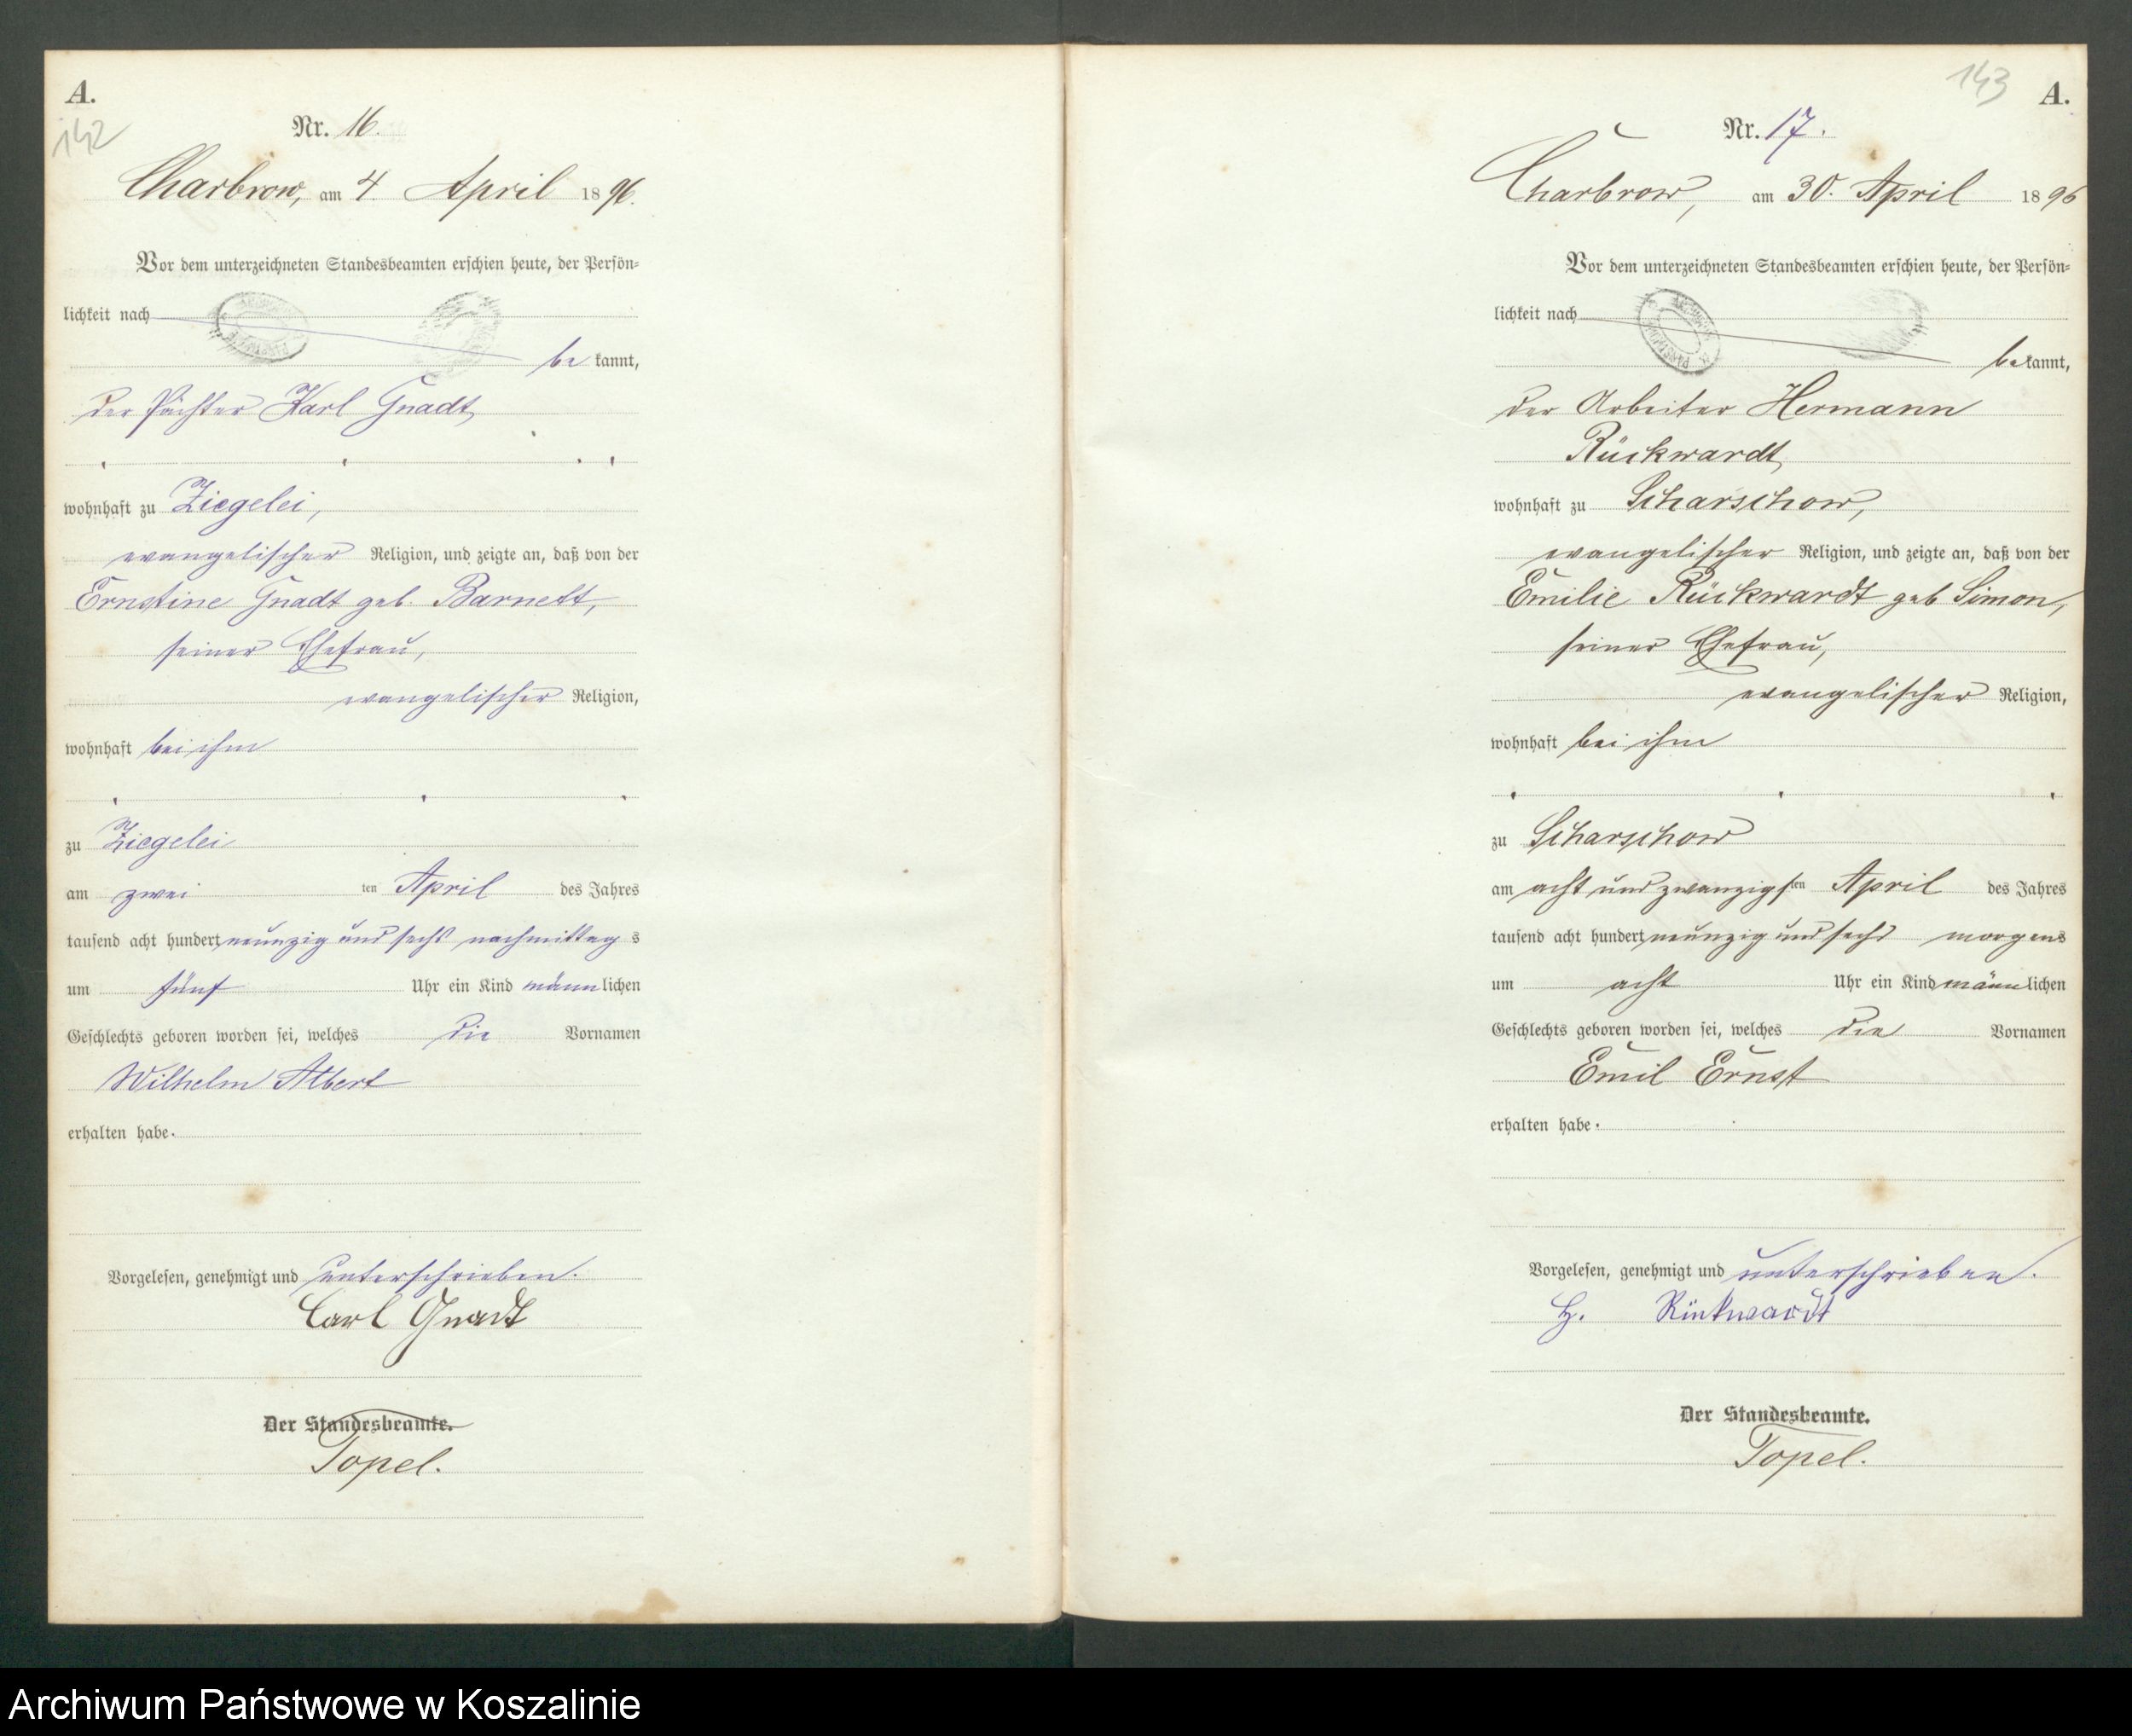 A.
142
Nr. 16.
Charbrow, am 4. April 1896.
Vor dem unterzeichneten Standesbeamten erschien heute, der Persön-
lichkeit nach
be kannt,
der Pächter Karl Gnadt,
wohnhaft zu Ziegelei,
evangelischer Religion, und zeigte an, daß von der
Ernstine Gnadt geb. Barnett,
seiner Ehefrau,
evangelischer Religion,
wohnhaft bei ihm
zu Ziegelei
am zwei ten April des Jahres
tausend acht hundert neunzig und sechs nachmittag s
um fünf Uhr ein Kind männlichen
Geschlechts geboren worden sei, welches die Vornamen
Wilhelm Albert
erhalten habe.
Vorgelesen, genehmigt und unterschrieben.
Carl Gnadt
Der Standesbeamte.
Topel.
143
A.
Nr. 17.
Charbrow, am 30. April 1896
Vor dem unterzeichneten Standesbeamten erschien heute, der Persön-
lichkeit nach
bekannt,
der Arbeiter Hermann
Rückwardt,
wohnhaft zu Scharschow,
evangelischer Religion, und zeigte an, daß von der
Emilie Rückwardt geb Simon,
seiner Ehefrau,
evangelischer Religion,
wohnhaft bei ihm
zu Scharschow
am acht und zwanzigsten April des Jahres
tausend acht hundert neunzig und sechs morgens
um acht Uhr ein Kind männlichen
Geschlechts geboren worden sei, welches die Vornamen
Emil Ernst
erhalten habe.
Vorgelesen, genehmigt und unterschrieben.
H. Rückwardt
Der Standesbeamte.
Topel.
Archiwum Państwowe w Koszalinie